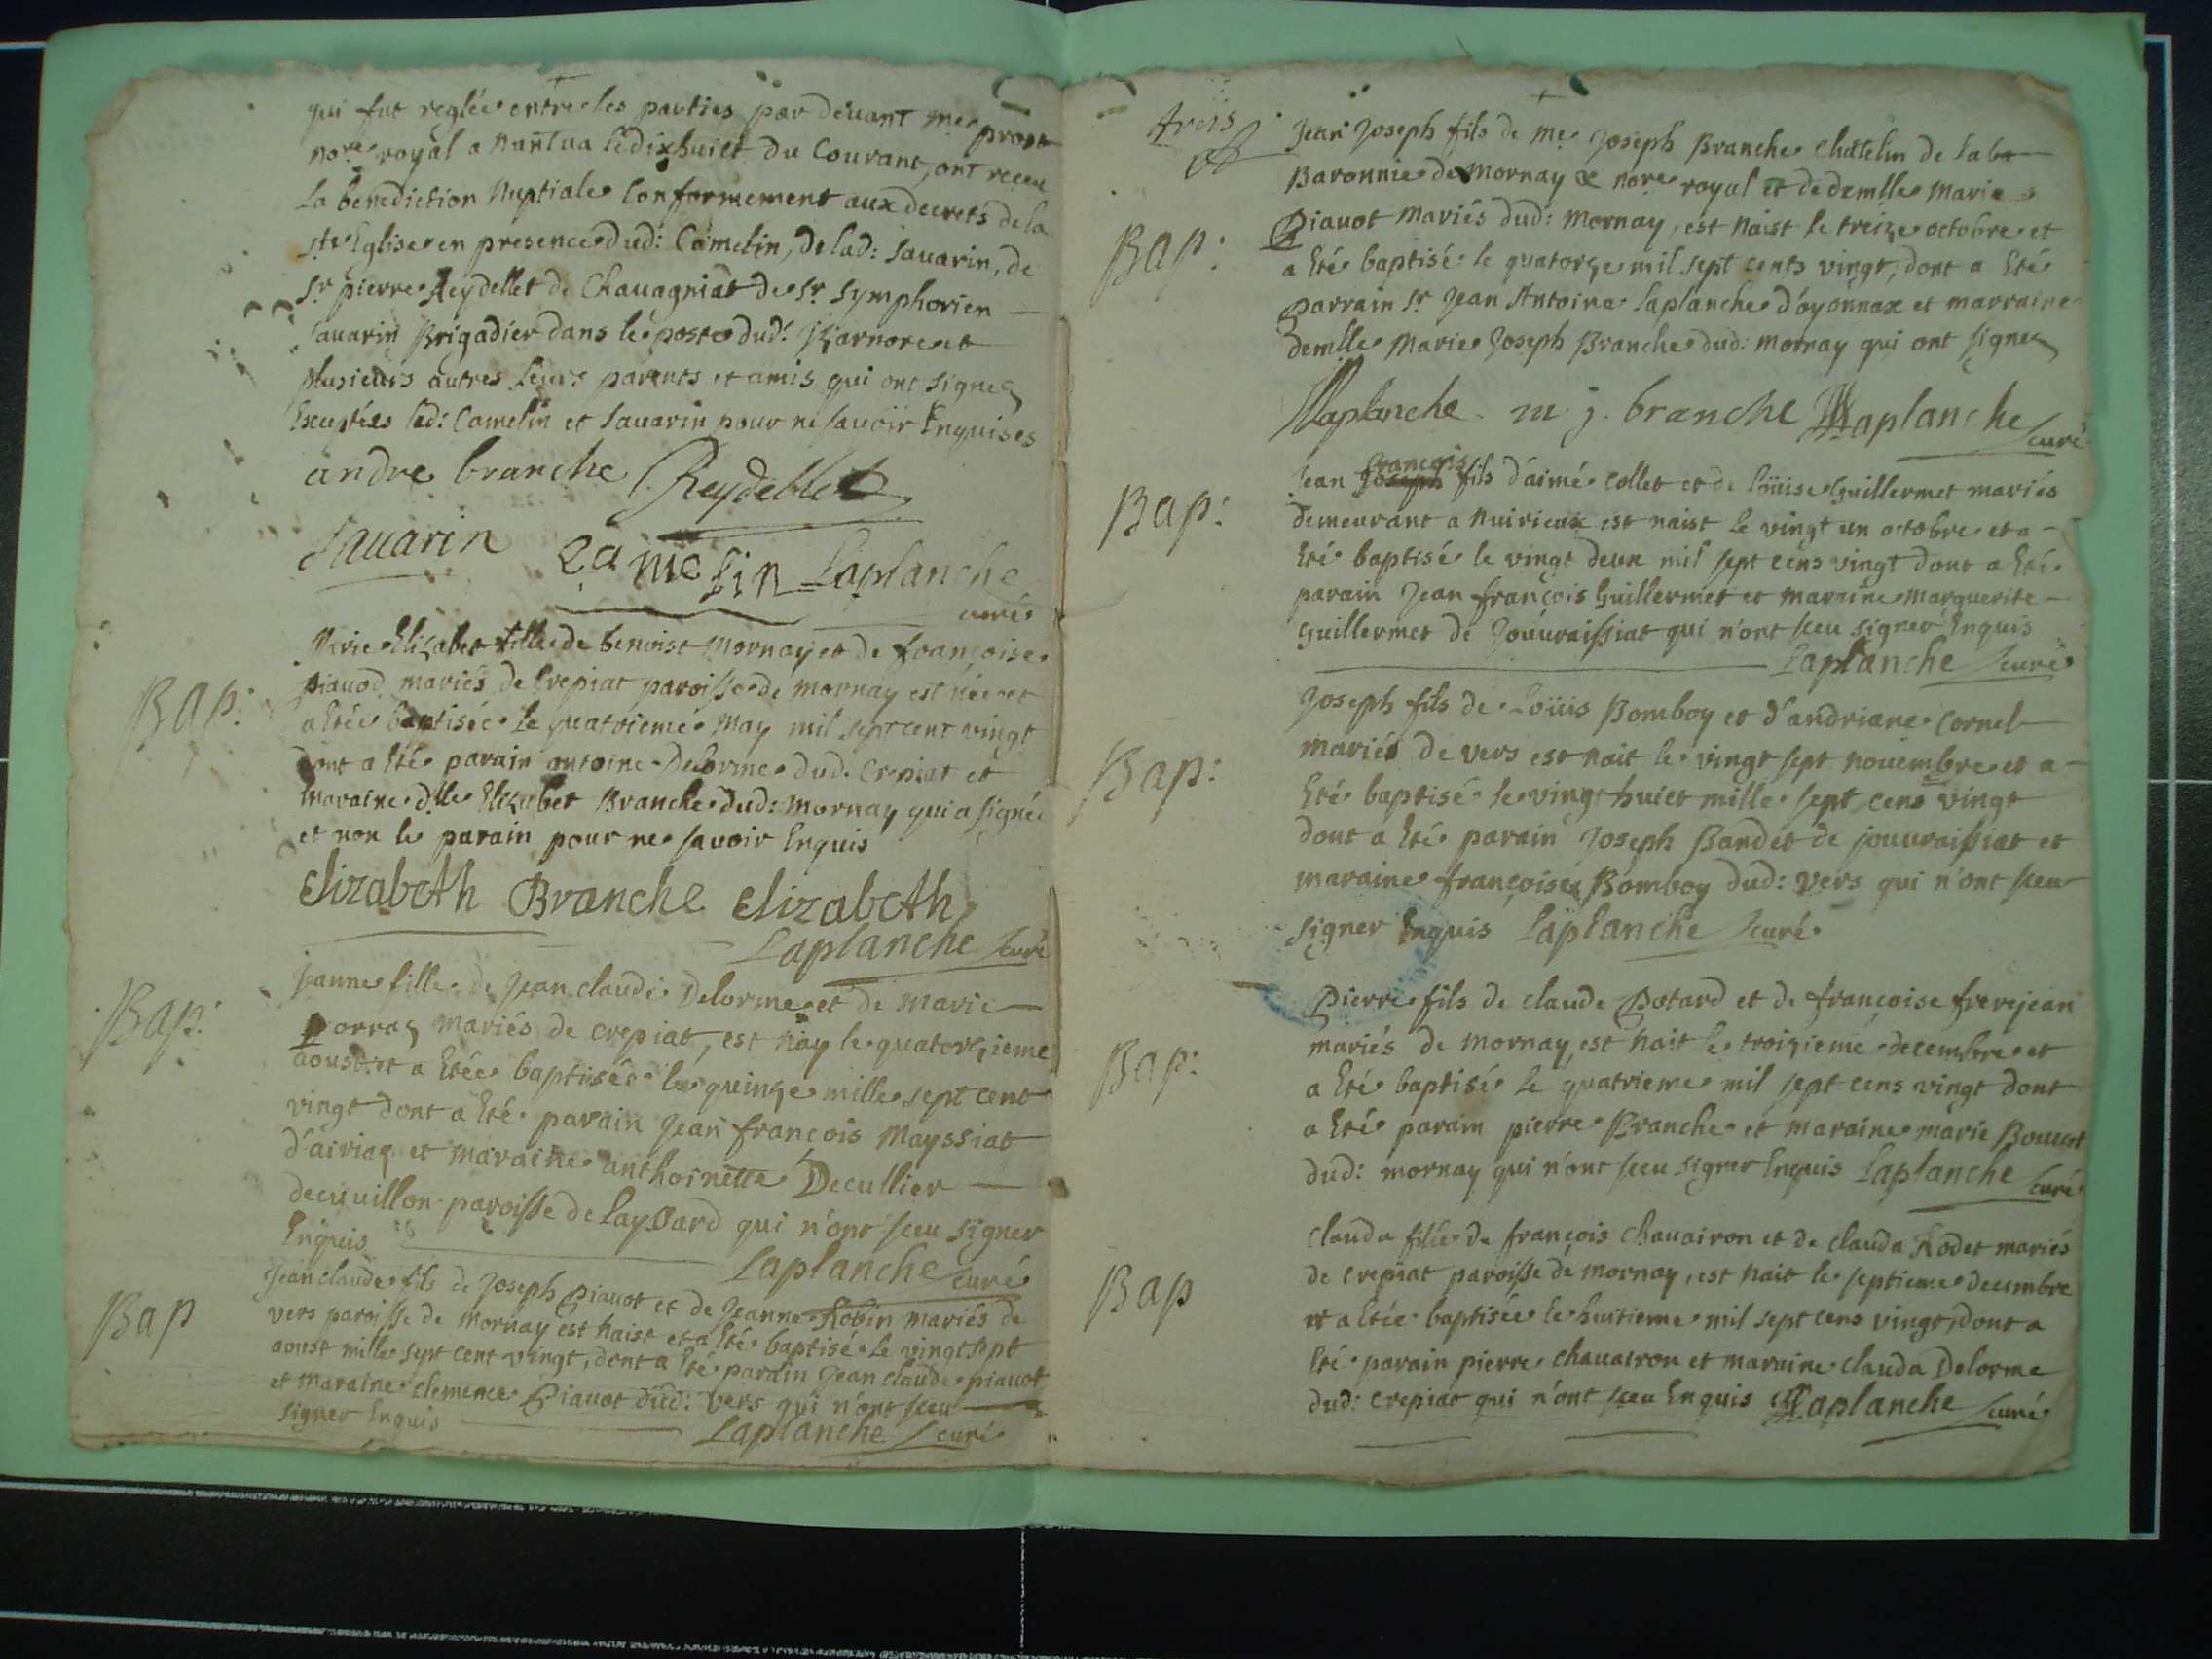 qui fut reglée entre les parties par devant me prost
nore royal a nantua le dixhuict du Courant, ont receu
la benediction Nuptiale Conformement aux decrets de la
ste Eglise en presence dud: Camelin, de lad: Sauarin, de
sr pierre Reydellet de Chauagniat de sr symphorien
sauarin Brigadier dans le poste dud: Izarnore et
plusieurs autres leurs parents et amis qui ont signez
Exceptées led: Camelin et Sauarin pour ne sauoir Enquises
andre branche Reydellet
Sauarin Camelin Laplanche
curé
Bap:
Marie Elizabet fille de benoist Mornay et de françoise
piauod mariés de Crepiat paroisse de mornay est née et
a Etée baptisée le quatrieme May mil sept cent vingt
dont a Eté parain antoine Delorme dud. Crepiat et
maraine dlle Elizabet Branche dud: mornay qui a signée
et non le parain pour ne sauoir Enquis
Elizabeth Branche Elizabeth
Laplanche curé
Bap:
Jeanne fille de Jean claude Delorme et de Marie
porraz mariés de crepiat, est nay le quatorzieme
aoust et a Etée baptisée le quinze mille sept cent
vingt dont a Eté parain Jean françois Mayssiat
d'airiaz et maraine anthoinette Decullier
decuuillon paroisse de Layssard qui n'ont sceu signer
Enquis
Laplanche curé
Bap
Jean claude fils de Joseph Piauot et de Jeanne Robin mariés de
vers paroisse de Mornay est naist et a Eté baptisé le vingt sept
aoust mille sept cent vingt, dont a Eté parain Jean claude piauot
et maraine clemence Piauot dud: vers qui n'ont sceu
signer Enquis
Laplanche curé
trois
Bap:
Jean Joseph fils de me Joseph Branche Chatelin de la ba
Baronnie de Mornay & nore royal et de demlle Marie
Piauot mariés dud: Mornay, est naist le treize octobre et
a Eté baptisé le quatorze mil sept cents vingt, dont a Eté
parrain sr Jean Antoine Laplanche d'oyonnax et marraine
demlle Marie Joseph Branche dud: mornay qui ont signez
Laplanche m j. branche Laplanche
curé
Bap:
françois
Jean Joseph fils d'aimé collet et de Loüise Guillermet mariés
demeurant a nuirieux est naist le vingt un octobre et a
Eté baptisé le vingt deux mil sept cens vingt dont a Eté
parain Jean françois Guillermet et maraine marguerite
Guillermet de Jouuraissiat qui n'ont sceu signer Enquis
Laplanche curé
Bap:
Joseph fils de Loüis Bomboy et d'andriane Cornel
mariés de vers est nait le vingt sept nouembre et a
Eté baptisé le vingt huict mille sept cens vingt
dont a Eté parain Joseph Bandet de jouuraissiat et
maraine françoise Bomboy dud: vers qui n'ont sceu
signer Enquis Laplanche curé
Bap:
Pierre fils de claude Potard et de françoise frerejean
mariés de mornay, est nait le troizieme decembre et
a Eté baptisé le quatrieme mil sept cens vingt dont
a Eté parain pierre Branche et maraine marie Bouuet
dud: mornay qui n'ont sceu signer Enquis Laplanche
curé
Bap
Clauda fille de françois Chauairon et de clauda Rodet mariés
de crepiat paroisse de mornay, est nait le septieme decembre
et a Etée baptisée le huitieme mil sept cens vingt, dont a
Eté parain pierre chauairon et maraine clauda Delorme
dud: crepiat qui n'ont sceu Enquis Laplanche curé